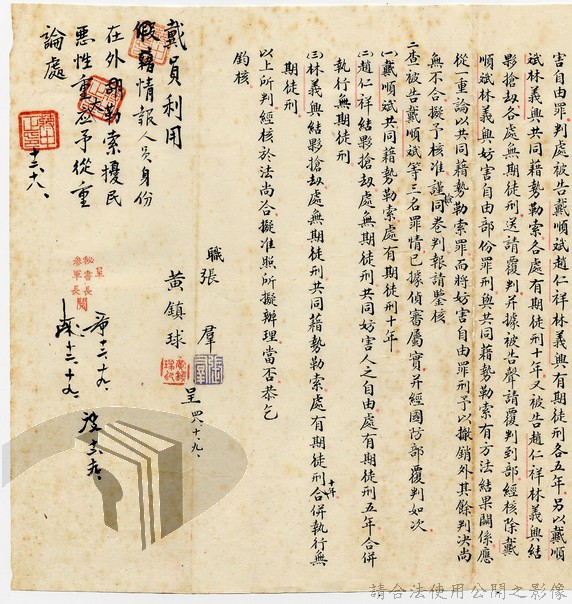 害自由罪判處被告戴順斌趙仁祥林義興有期徒刑各五年另以戴順
斌林義興共同藉勢勒索各處有期徒刑十年又被告趙仁祥林義興結
夥搶劫各處無期徒刑送請覆判并據被告聲請覆判到部經核除戴
順斌林義興妨害自由部份罪刑與共同藉勢勒索有方法結果關係應
從一重論以共同藉勢勒索罪而將妨害自由罪刑予以撤銷外其餘判決尚
無不合擬予核准謹檢同卷判報請鑒核
二查被告戴順斌等三名罪情已據偵審屬實并經國防部覆判如次
(一)戴順斌共同藉勢勒索處有期徒刑十年
(二)趙仁祥結夥搶劫處無期徒刑共同妨害人之自由處有期徒刑五年合併
執行無期徒刑
(三)林義興結夥搶劫處無期徒刑共同藉勢勒索處有期徒刑十年合併執行無
期徒刑
以上所判經核於法尚合擬准照所擬辦理當否恭乞
鈞核
職張 羣
黃鎮球
呈 四八、十、九、
呈
秘書長
參軍長
閱
戴員利用
假藉情報人員身份
在外勒索擾民
惡性重大應予從重
論處
十二、八、
請合法使用公開之影像